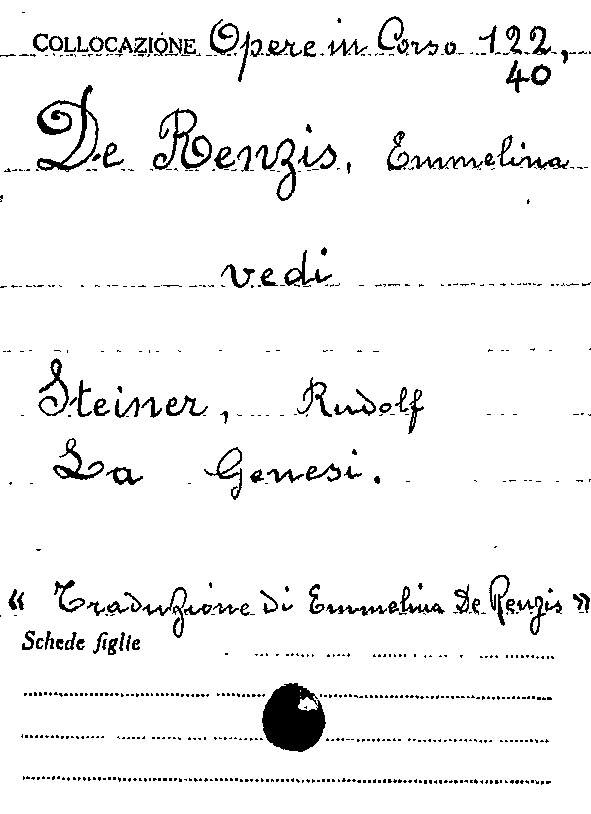 COLLOCAZIONE Opere in Corso 122,
40
De Renzis, Emmelina
vedi
Steiner, Rudolf
La Genesi.
« Traduzione di Emmelina De Renzis »
Schede figlie